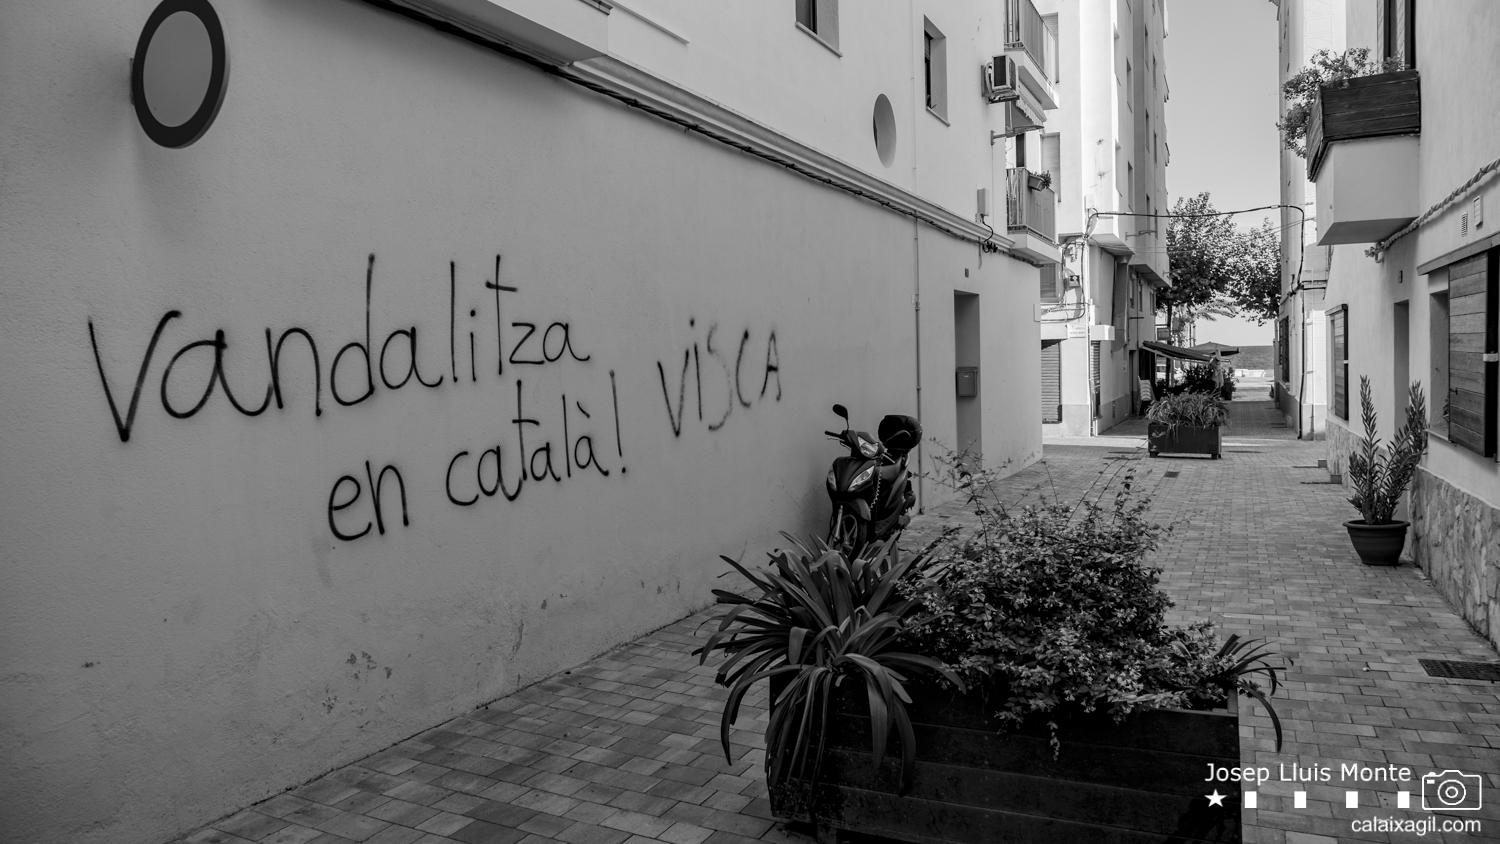 Vandalitza
en català!
VISCA
Josep Lluis Monte
calaixagil.com